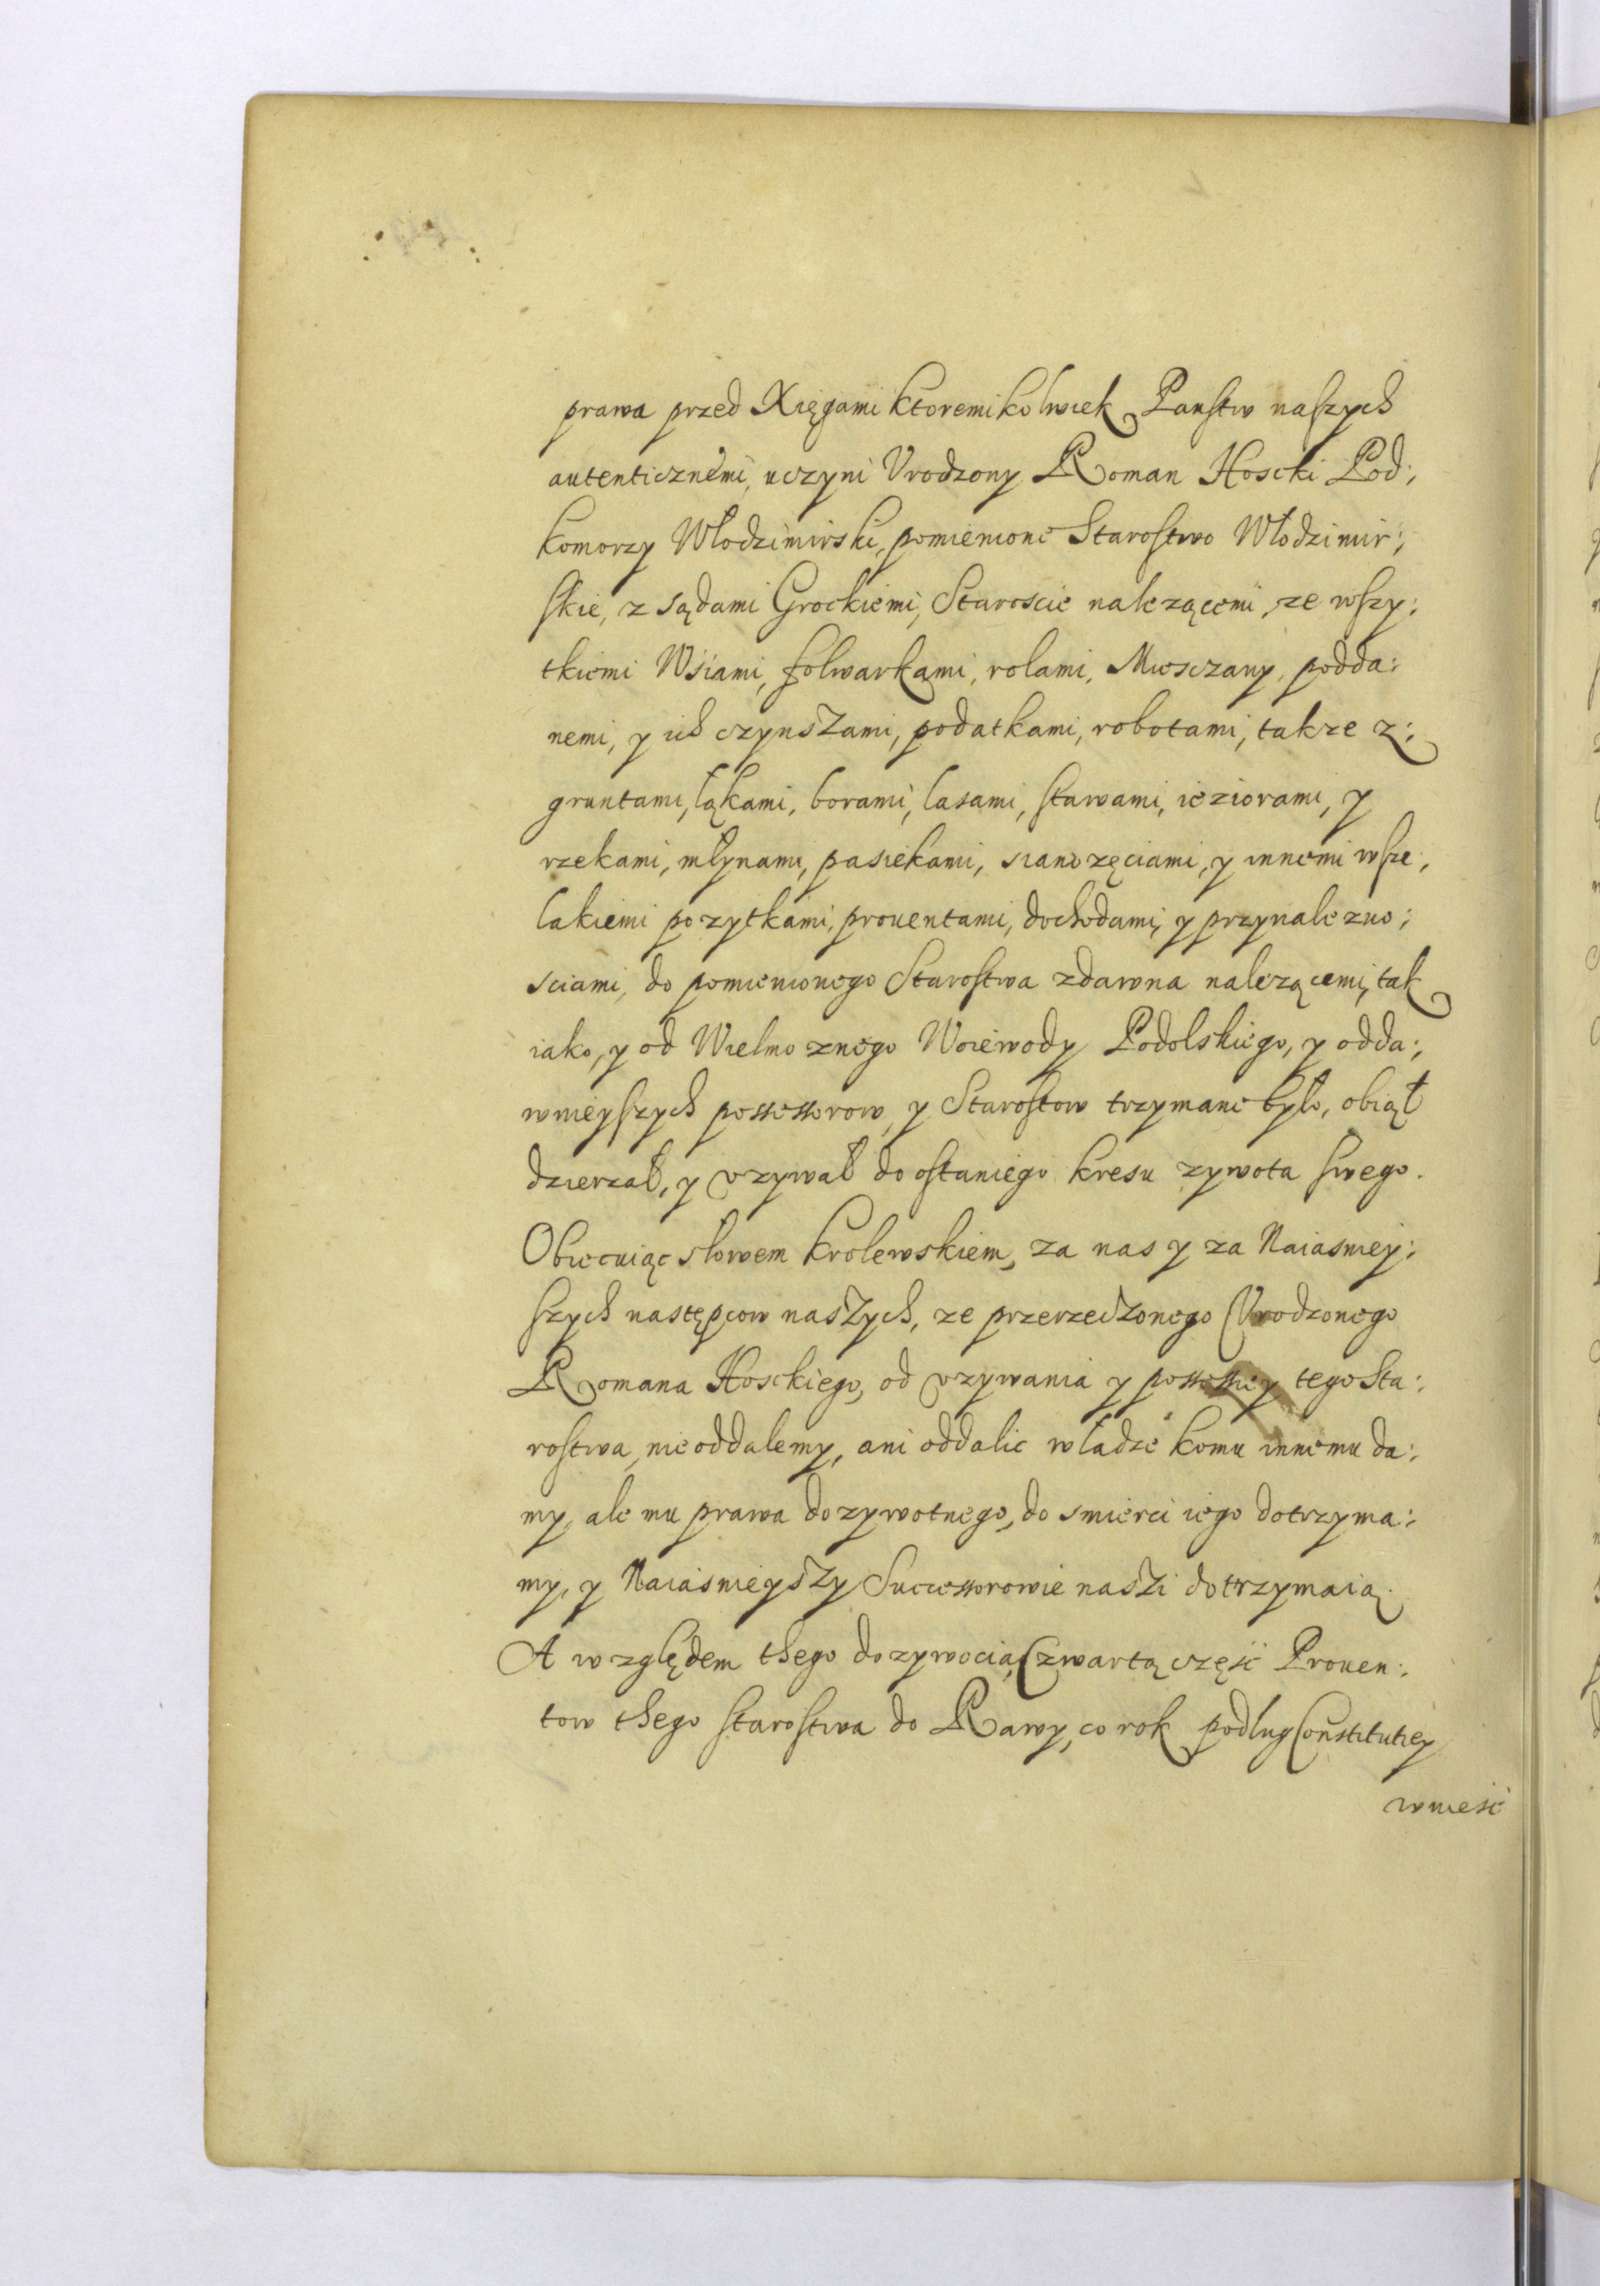 prawa przed Xięgami ktoremikolwiek Panstw naszych
autenticznemi, uczyni Vrodzony Roman Hoscki Pod:
komorzy Włodzimirski, pomienione Starostwo Włodzimir:
skie, z sądami Grockiemi, Staroscie nalezącemi, ze wszy:
tkiemi Wsiami, folwarkami, rolami, Miesczany, podda:
nemi, y ich czynszami, podatkami, robotami, takze z:
gruntami, łąkami, borami, lasami, stawami, ieziorami, y
rzekami, młynami, pasiekami, sianozęciami, y innemi wsze:
lakiemi pozytkami, prouentami, dochodami, y przynalezno:
sciami, do pomienionego Starostwa zdawna nalezącemi, tak
iako, y od Wielmoznego Woiewody Podolskiego, y odda:
wnieyszych possessorow, y Starostow trzymane było, obiął
dzierzał, y vzywał do ostaniego kresu zywota swego.
Obiecuiąc słowem Krolewskiem, za nas y za Naiasniey:
szych następcow naszych, ze przerzeczonego Vrodzonego
Romana Hosckiego, od vzywania y possessiey tego Sta:
rostwa, nieoddalemy, ani oddalic władze komu innemu da:
my, ale mu prawa dozywotnego, do smierci iego dotrzyma:
my, y Naiasnieyszy Successorowie naszi dotrzymaią.
A względem thego dozywocia, Czwartą częsć Prouen:
tow thego starostwa do Rawy, co rok podług Constitutiey
wniesć